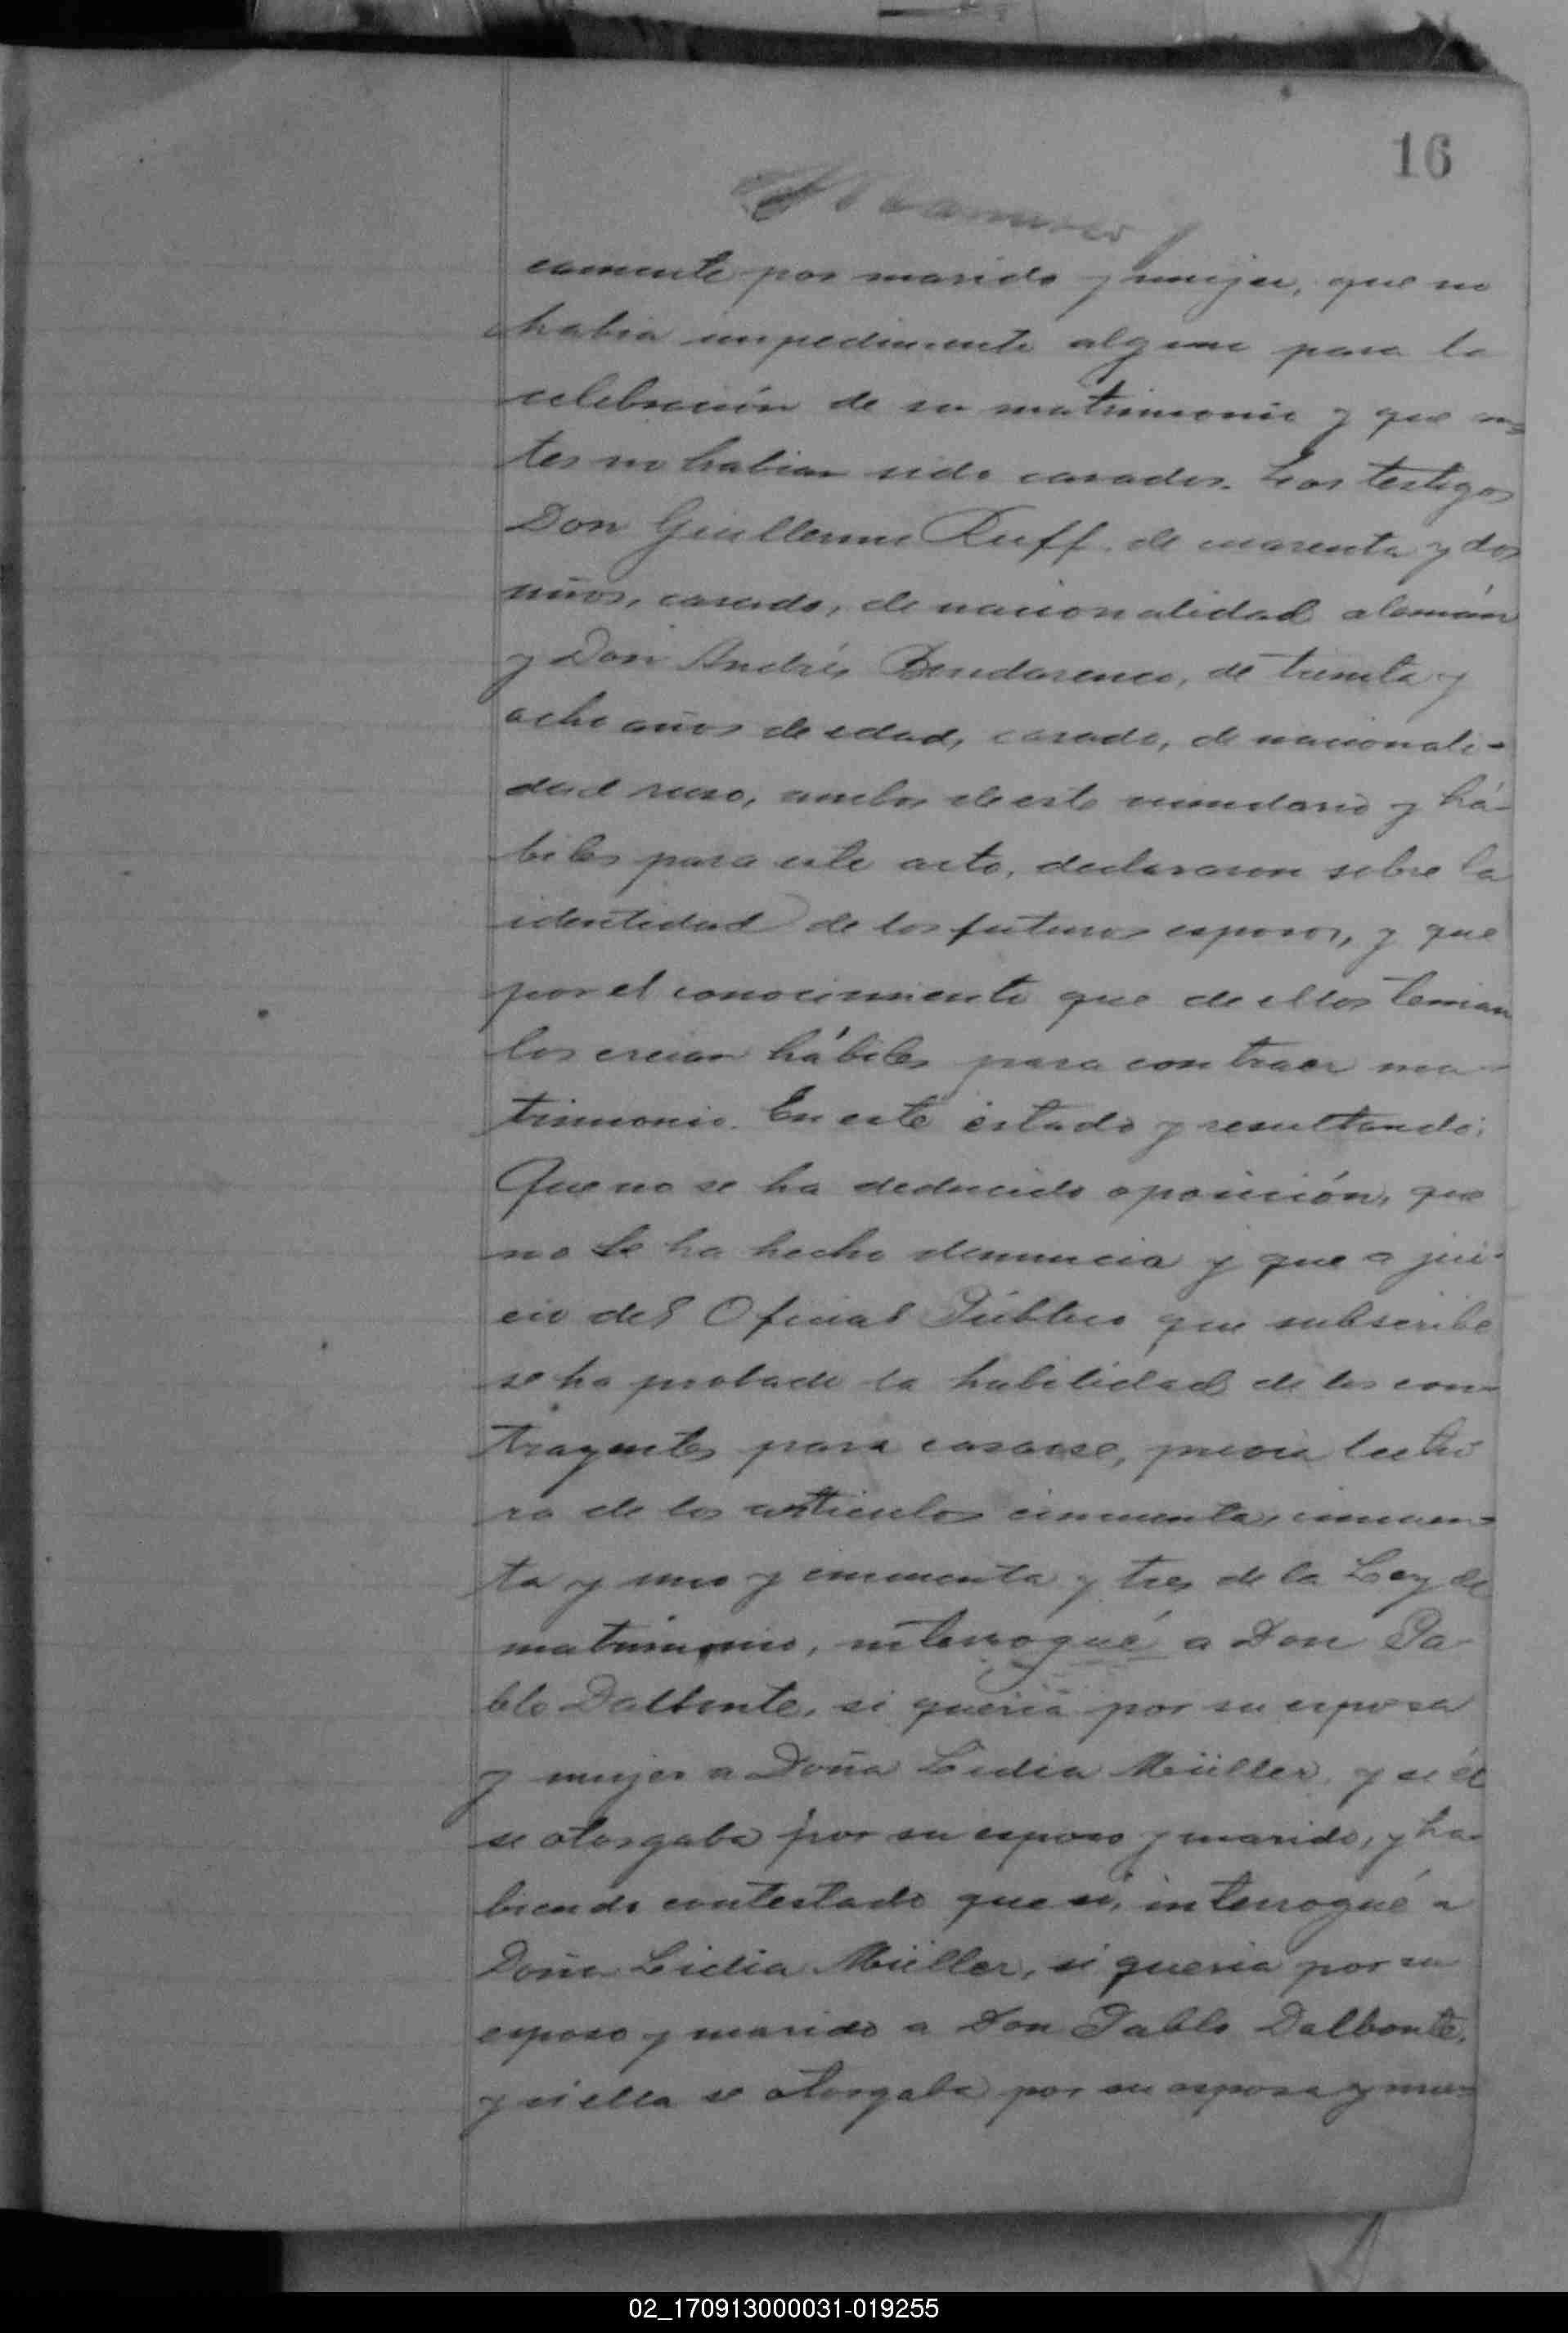 16
camente por marido y mujer, que no
habia impedimento alguno para la
celebración de su matrimonio y que an=
tes no habian sido casados. Los testigos
Don Guillermo Ruff, de cuarenta y dos
años, casado, de nacionalidad alemán
y Don Andrés Bondarenco, de treinta y
ocho años de edad, casado, de nacionali-
dad ruso, ambos de este vecindario y há-
biles para este acto, declararon sobre la
identidad de los futuros esposos, y que
por el conocimiento que de ellos tenian
los creian hábiles para contraer ma-
trimonio. En este estado y resultando:
Que no se ha deducido oposición, que
no se ha hecho denuncia y que a jui-
cio del Oficial Público que subscribe
se ha probado la habilidad de los con-
trayentes para casarse, previa lectu
ra de los artículos cincuenta, cincuen-
ta y uno y cincuenta y tres de la Ley de
matrimonio, interrogué a Don Pa-
blo Dalbonte, si queria por su esposa
y mujer a Doña Lidia Müller, y si él
se otorgaba por su esposo y marido, y ha-
biendo contestado que si, interrogué a
Doña Lidia Müller, si queria por su
esposo y marido a Don Pablo Dalbonte,
y si ella se otorgaba por su esposa y mu=
02_170913000031-019255